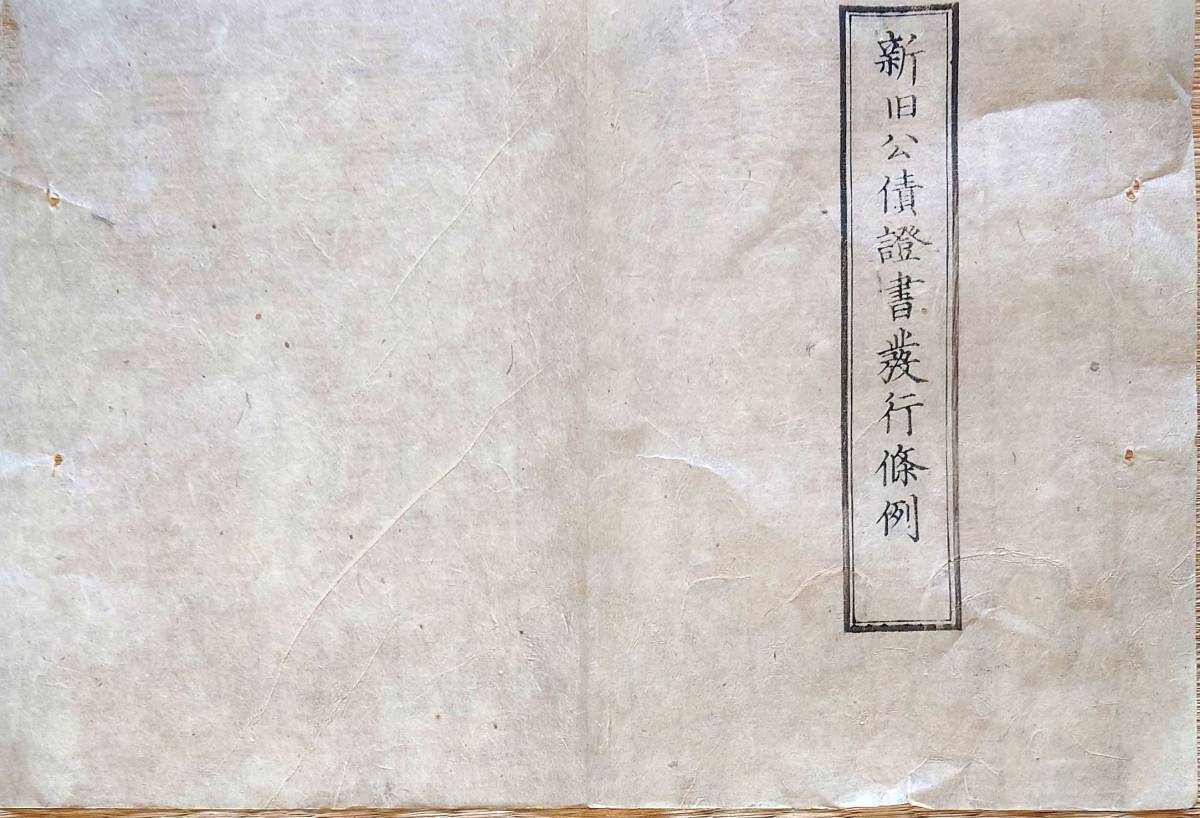 新旧公債證書發行條例